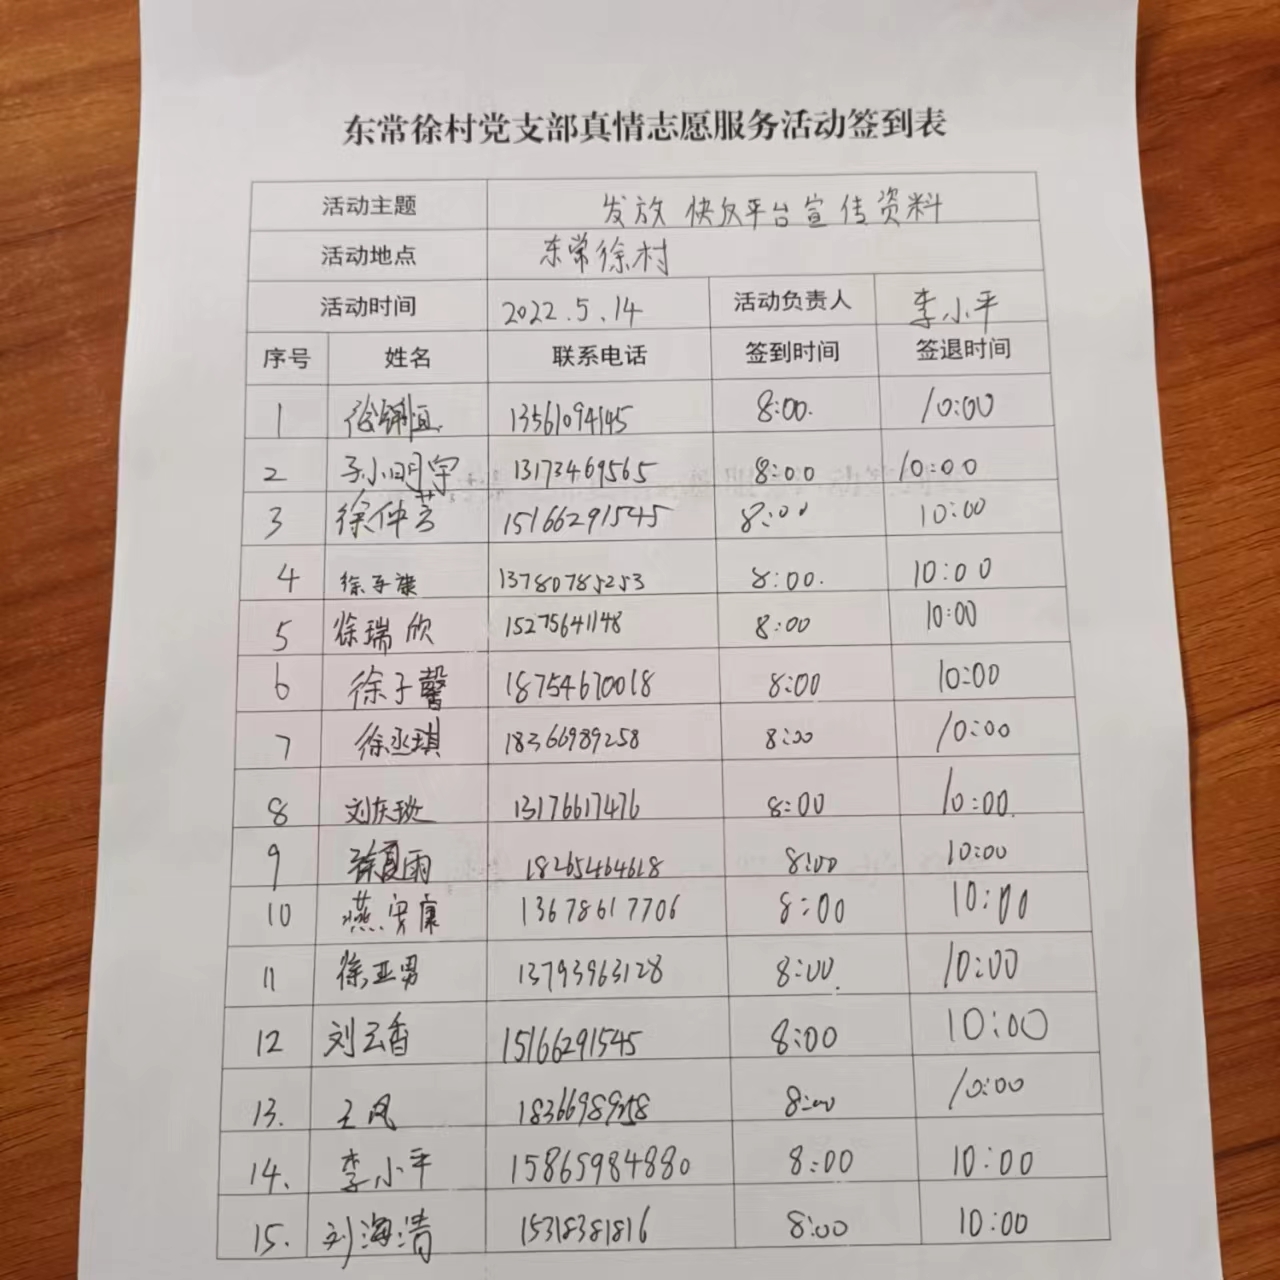 东常徐村党支部真情志愿服务活动签到表
活动主题 发放快反平台宣传资料
活动地点 东常徐村
活动时间 2022.5.14 活动负责人 李小平
序号 姓名 联系电话 签到时间 签退时间
1 徐 13561094145 8:00. 10:00
2 孙明宇 13173469565 8:00 10:00
3 徐仲芸 15166291545 8:00 10:00
4 徐子康 13780785253 8:00. 10:00
5 徐瑞欣 15275641148 8:00 10:00
6 徐子馨 18754670018 8:00 10:00
7 徐丞琪 18366989258 8:00 10:00
8 刘庆 13176617476 8:00 10:00.
9 徐夏雨 18265464618 8:00 10:00
10 燕安康 13678617706 8:00 10:00
11 徐亚男 13793963128 8:00. 10:00
12 刘云香 15166291545 8:00 10:00
13. 王凤 18366989258 8:00 10:00
14. 李小平 15865984880 8:00 10:00
15. 刘海清 15318381816 8:00 10:00